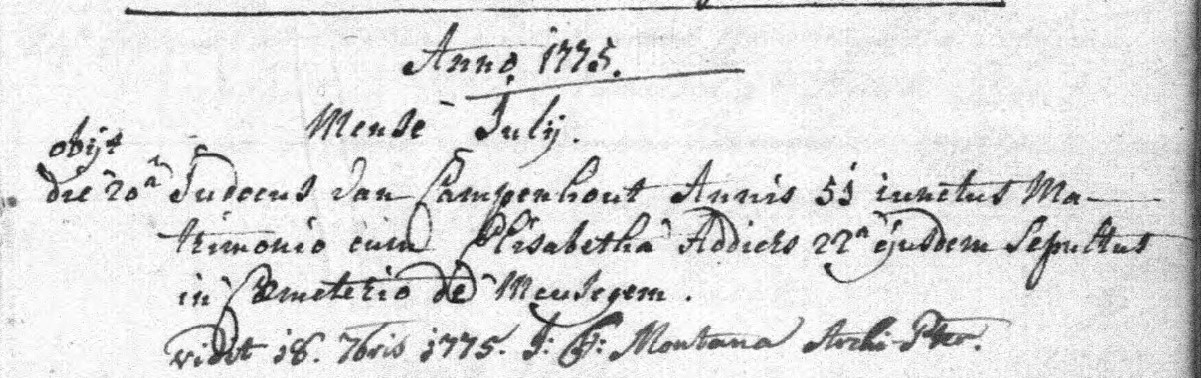 Anno 1775.
Mense July
obijt
die 20a Judocus Van Campenhout Annis 55 iunctus Ma-
trimonio cum Elisabetha Addiers 22a ejusdem Sepultus
in Cemeterio de Meusegem.
vidit 18. 7bris 1775. J: F: Montana Archi-Pter.